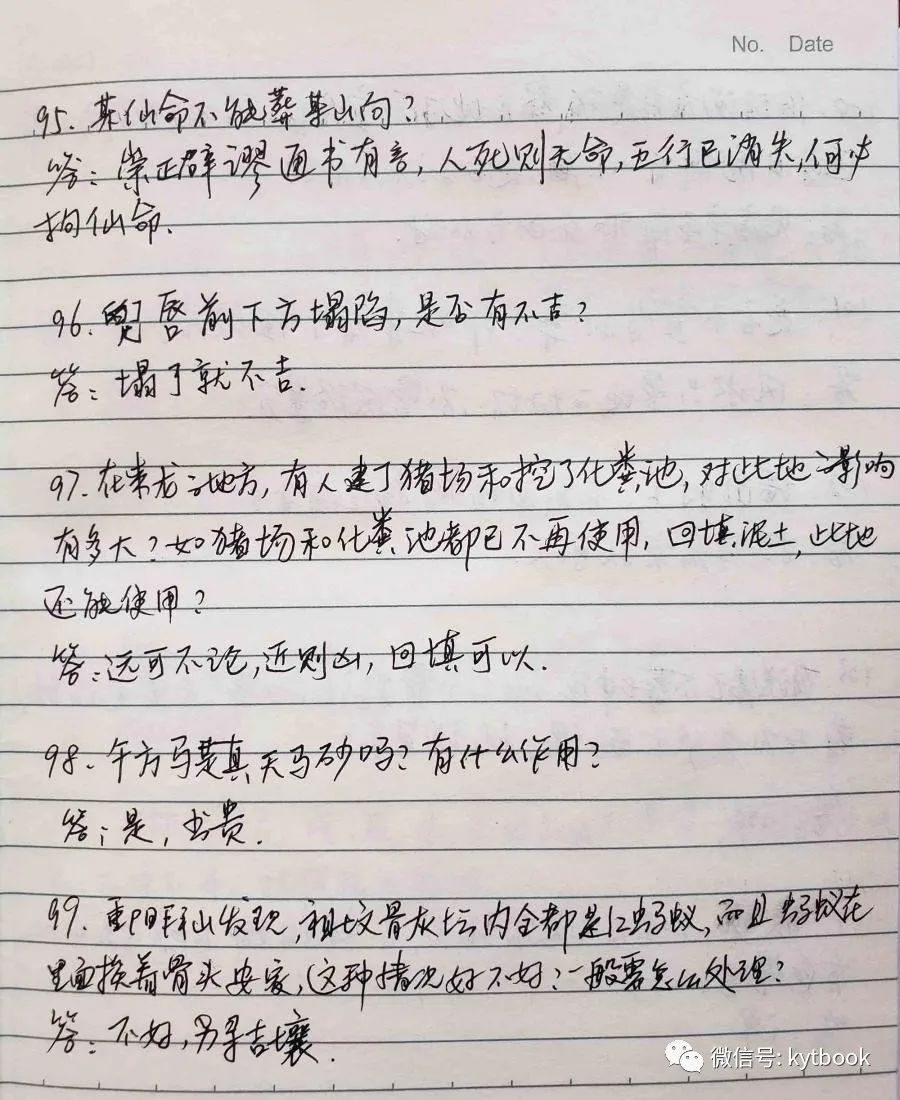 No. Date
95. 某仙命不能葬某山向？
答：崇正辟谬通书有言，人死则无命，五行已消失，何必
拘仙命.
96. 唇前下方塌陷，是否有不吉？
答：塌了就不吉.
97. 在来龙之地方，有人建了猪场和挖了化粪池，对此地之影响
有多大？如猪场和化粪池都已不再使用，回填泥土，此地
还能使用？
答：远可不论，近则凶，回填可以.
98. 午方马是真天马砂吗？有什么作用？
答：是，出贵.
99. 重阳拜山发现，祖坟骨灰坛内全都是红蚂蚁，而且蚂蚁在
里面挨着骨头安家，这种情况好不好？一般需怎么处理？
答：不好，另寻吉壤.
微信号: kytbook